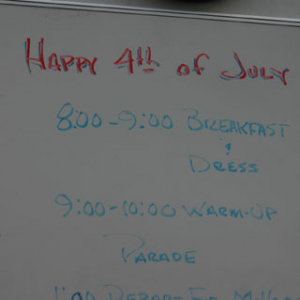 HAPPY 4th of JULY
8:00-9:00 BREAKFAST
&
DRESS
9:00-10:00 WARM-UP
PARADE
1:00 DEPART